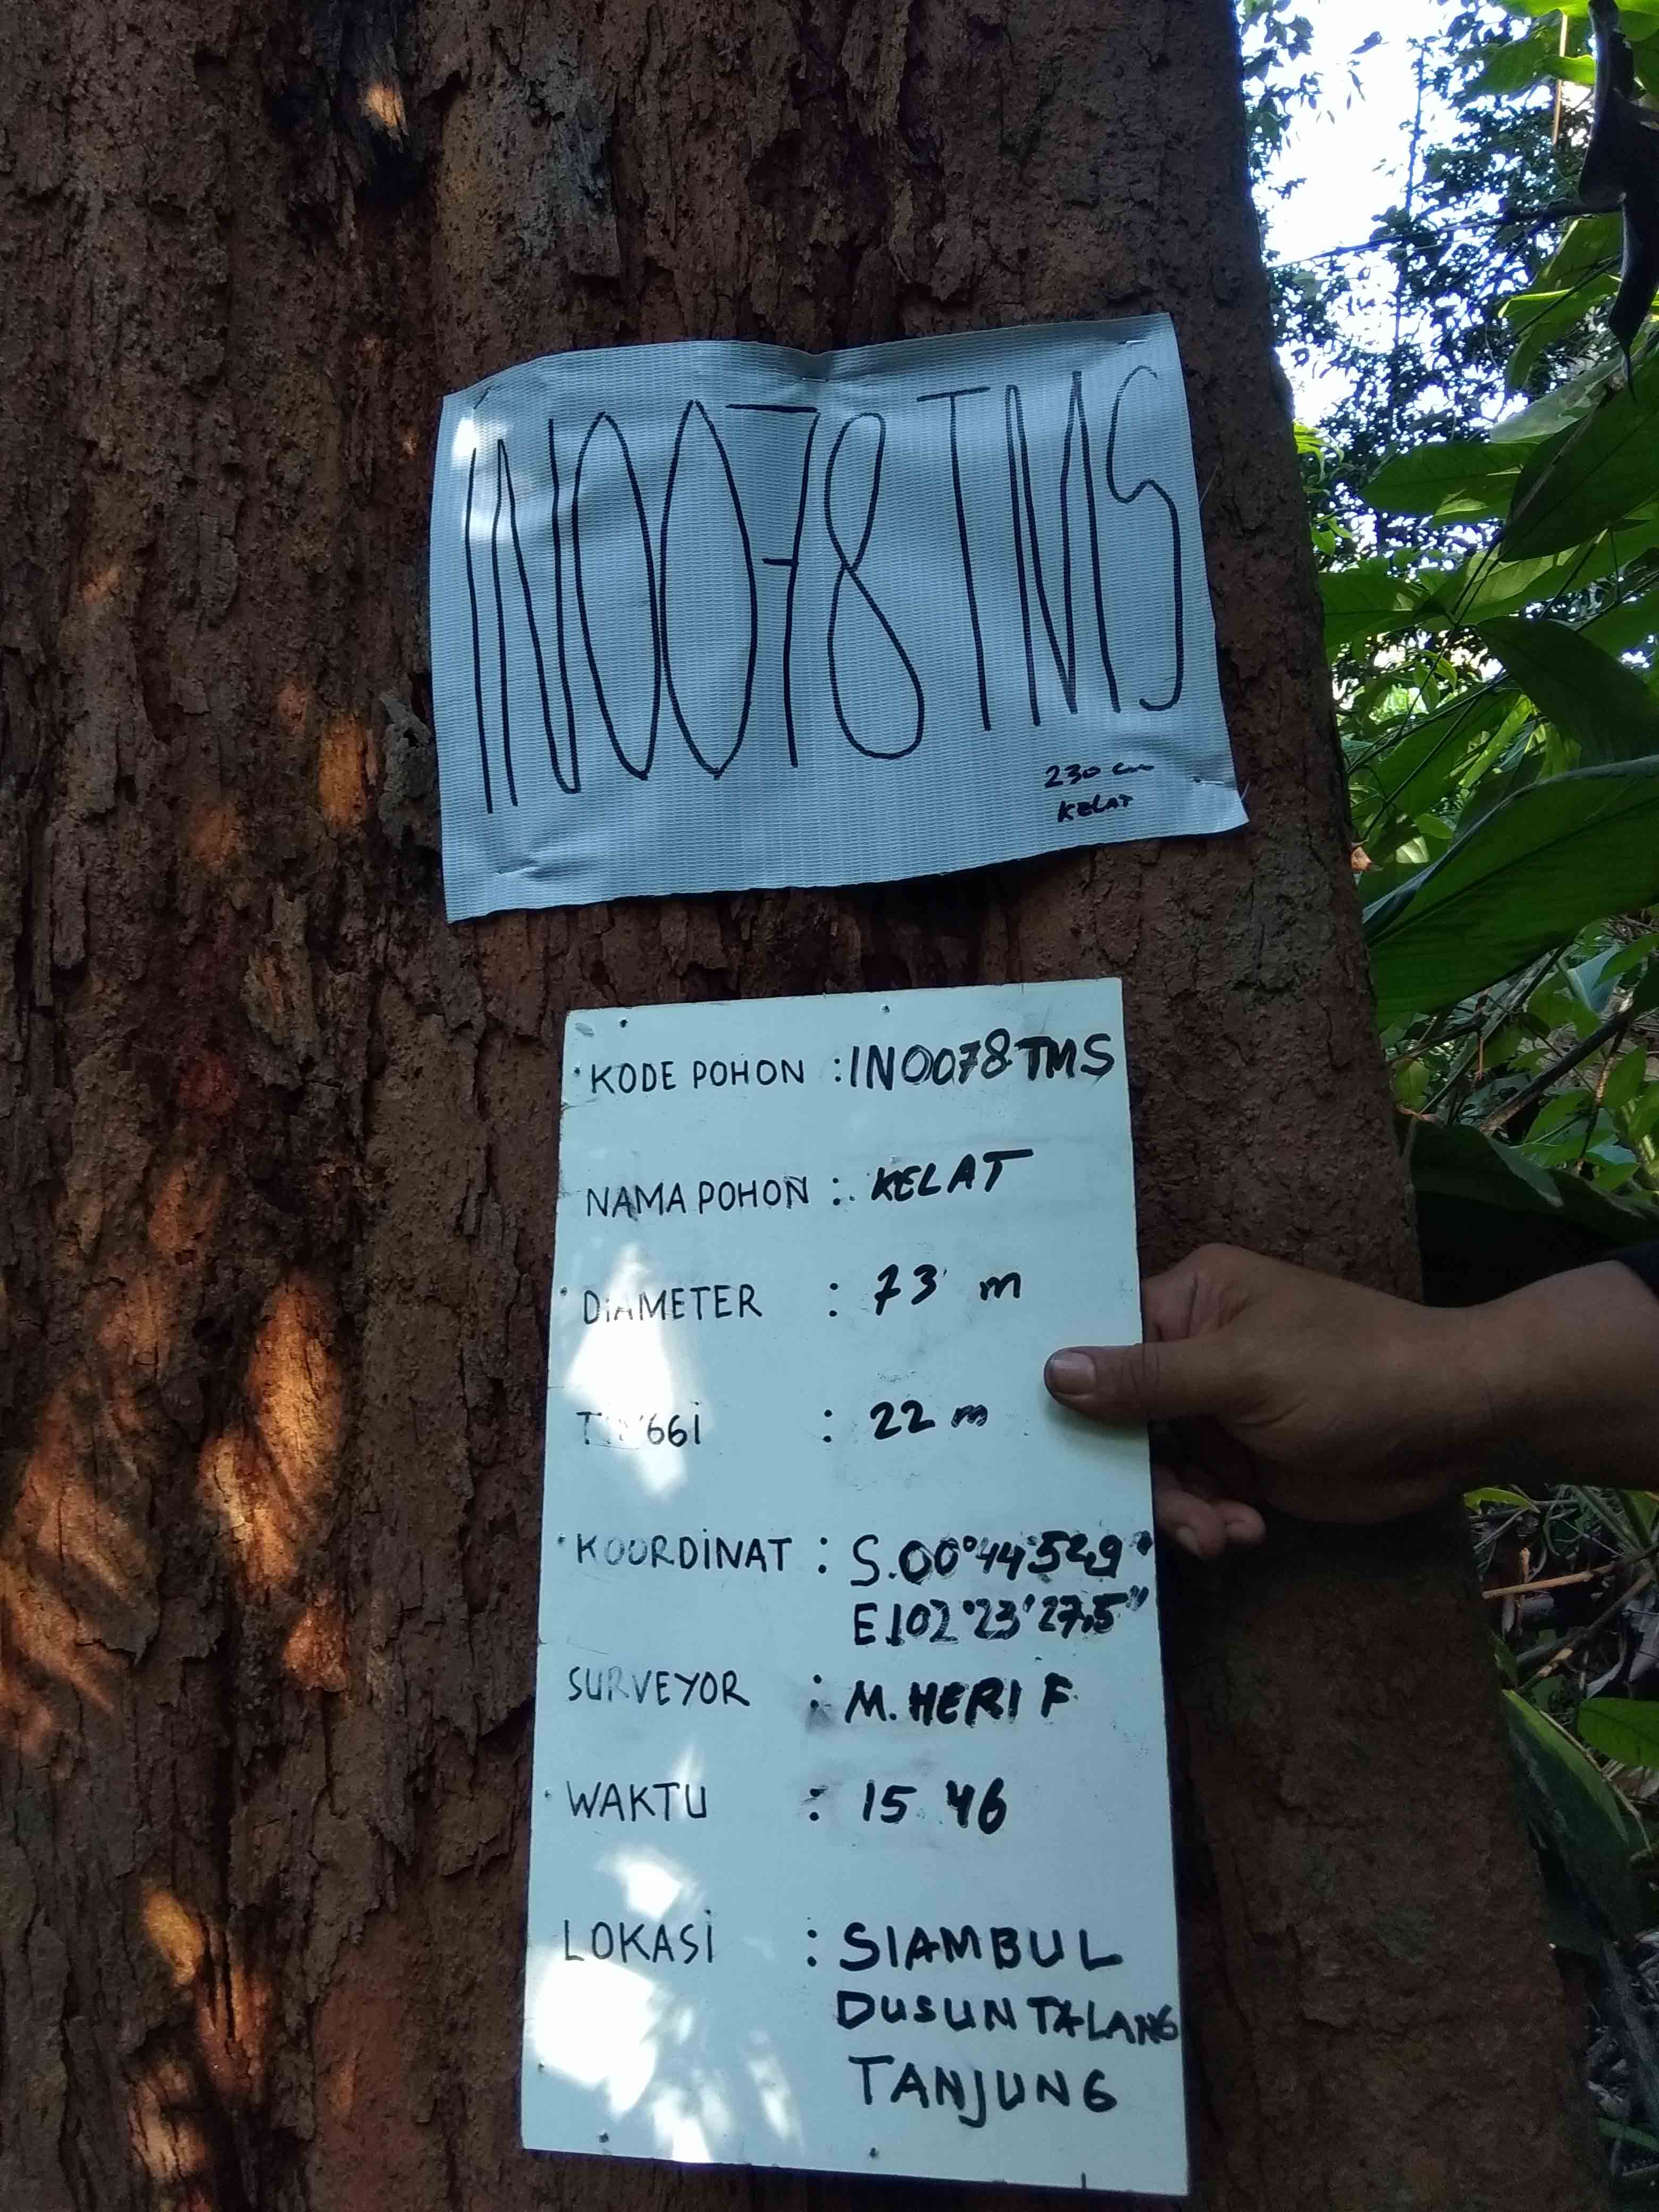 IN0078TMS
230 cm
KELAT
KODE POHON : IN0078TMS
NAMA POHON : KELAT
DIAMETER : 73 m
TINGGI : 22 m
KOORDINAT : S.00°44'52,9"
E102°23'27,5"
SURVEYOR : M. HERI F
WAKTU : 15 46
LOKASI : SIAMBUL
DUSUN TALANG
TANJUNG